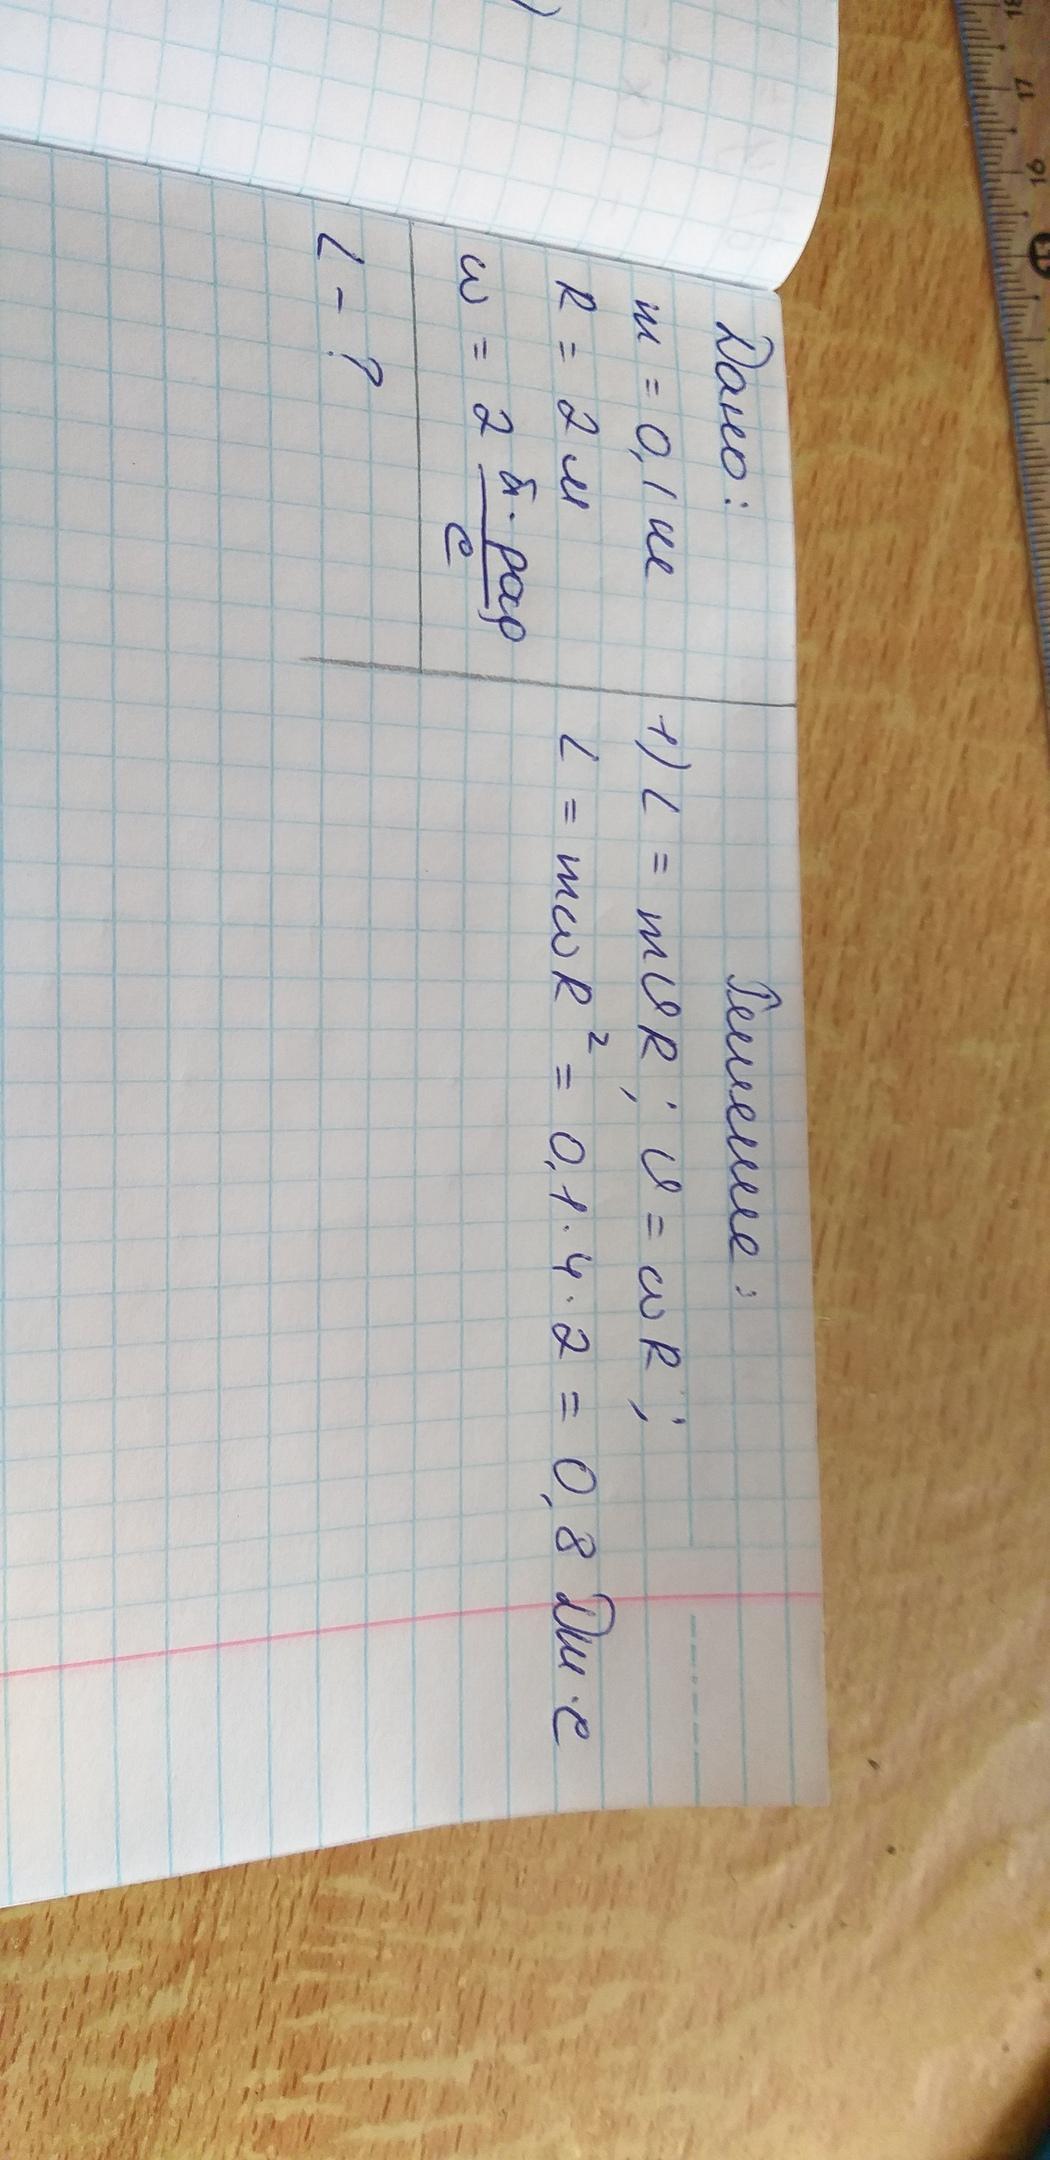 Дано:
m = 0,1 кг
R = 2 м
ω = 2 к·рад/с
L - ?
Решение:
1) L = mϑR; ϑ = ωR;
L = mωR² = 0,1·4·2 = 0,8 Дж·с
18
17
16